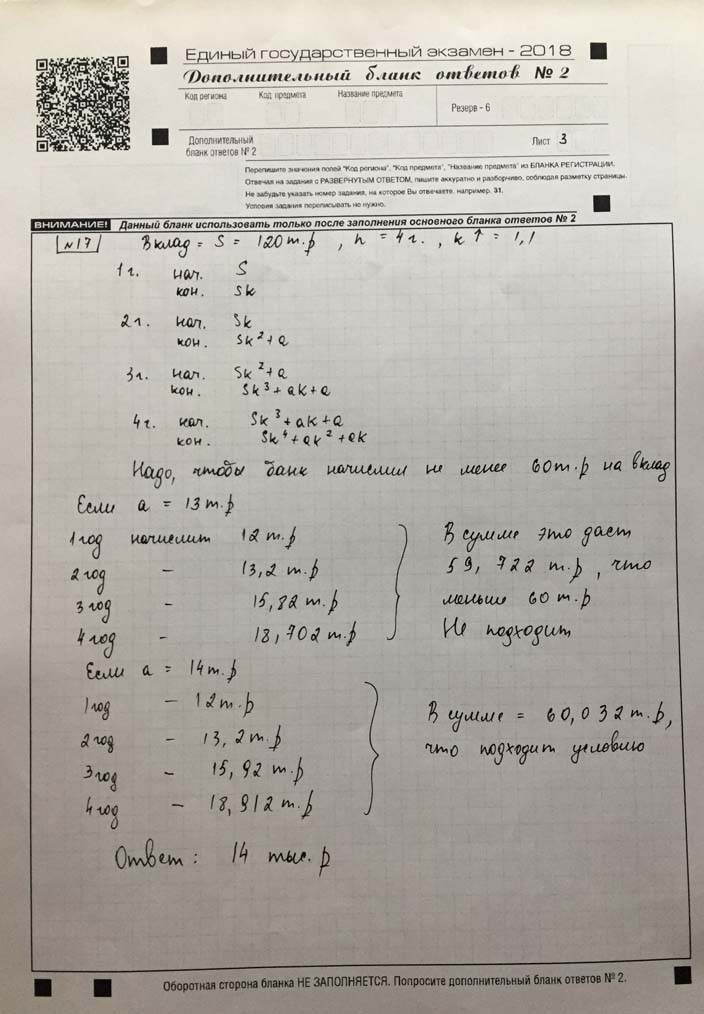 Единый государственный экзамен - 2018
Дополнительный бланк ответов № 2
Код региона Код предмета Название предмета
Резерв - 6
Дополнительный
бланк ответов № 2
Лист 3
Перепишите значения полей "Код региона", "Код предмета", "Название предмета" из БЛАНКА РЕГИСТРАЦИИ.
Отвечая на задания с РАЗВЕРНУТЫМ ОТВЕТОМ, пишите аккуратно и разборчиво, соблюдая разметку страницы.
Не забудьте указать номер задания, на которое Вы отвечаете, например, 31.
Условия задания переписывать не нужно.
ВНИМАНИЕ! Данный бланк использовать только после заполнения основного бланка ответов № 2
№17 Вклад = S = 120 т.р , n = 4 г. , k ↑ = 1,1
1 г. нач. S
кон. Sk
2 г. нач. Sk
кон. Sk² + a
3 г. нач. Sk² + a
кон. Sk³ + ak + a
4 г. нач. Sk³ + ak + a
кон. Sk⁴ + ak² + ak
Надо, чтобы банк начислил не менее 60 т.р на вклад
Если a = 13 т.р
1 год начислит 12 т.р
2 год – 13,2 т.р
3 год – 15,82 т.р
4 год – 18,702 т.р
В сумме это даст
59,722 т.р, что
меньше 60 т.р
Не подходит
Если a = 14 т.р
1 год – 12 т.р
2 год – 13,2 т.р
3 год – 15,92 т.р
4 год – 18,912 т.р
В сумме = 60,032 т.р,
что подходит условию
Ответ: 14 тыс. р
Оборотная сторона бланка НЕ ЗАПОЛНЯЕТСЯ. Попросите дополнительный бланк ответов № 2.